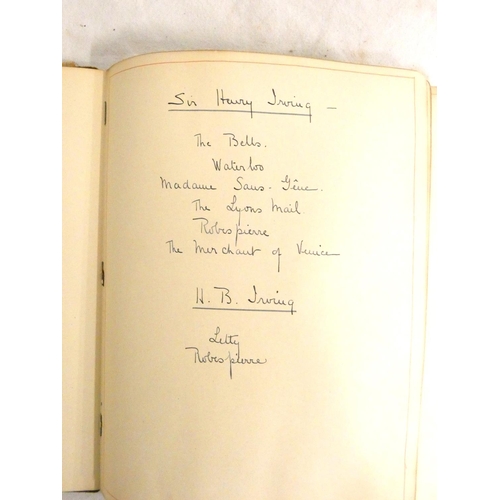 Sir Henry Irving –
The Bells.
Waterloo
Madame Sans-Gêne.
The Lyons Mail
Robespierre
The Merchant of Venice
H. B. Irving
Letty
Robespierre